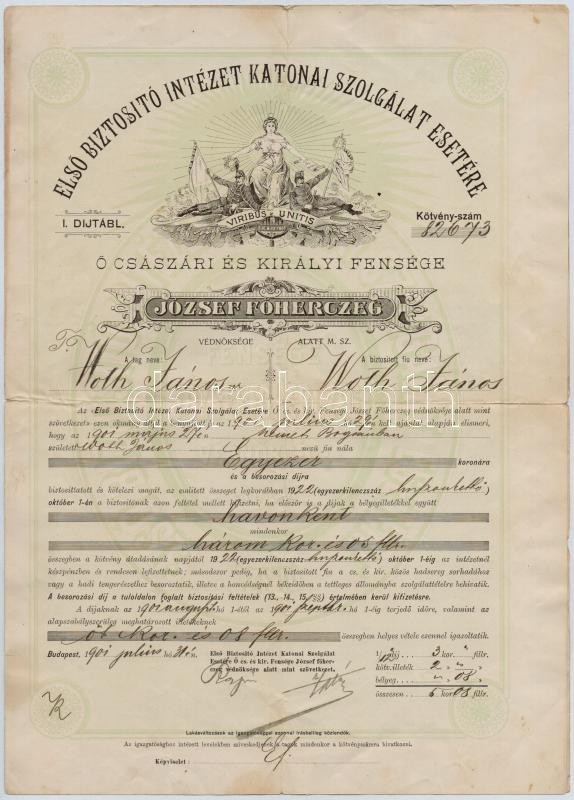 ELSŐ BIZTOSITÓ INTÉZET KATONAI SZOLGÁLAT ESETÉRE
I. DIJTÁBL.
VIRIBUS UNITIS
Kötvény-szám
82673
Ő CSÁSZÁRI ÉS KIRÁLYI FENSÉGE
JÓZSEF FŐHERCZEG
VÉDNÖKSÉGE ALATT M. SZ.
A tag neve: A biztosított fiu neve:
Woth János Woth János
darabanth
Az «Első Biztosító Intézet Katonai Szolgálat Esetére Ő cs. és kir. Fensége József Főherczeg védnöksége alatt mint
szövetkezet» ezen okmány által a bemutatott és 1901 julius 29 kelt ajánlat alapján elismeri,
hogy az 1901 május 27én Német Bogsánban
született Woth János nevű fiu után
Egyezer koronára
és a besorozási dijra
biztosittatott és kötelezi magát, az említett összeget legkorábban 1922 (egyezerkilenczszáz huszonkettő)
október 1-én a biztosítónak azon feltétel mellett kifizetni, ha először is a dijak a bélyegilletékkel együtt
havonként
mindenkor
három kor. és 05 fllr.
összegben a kötvény átadásának napjától 1922 (egyezerkilenczszáz huszonkettő) október 1-éig az intézetnél
készpénzben és rendesen lefizettetnek; másodszor pedig, ha a biztosított fiu a cs. és kir. közös hadsereg sorhadához
vagy a hadi tengerészethez besoroztatik, illetve a honvédségnél békeidőben a tettleges állományba szolgálattételre behivatik.
A besorozási dij a tuloldalon foglalt biztosítási feltételek (13., 14., 15. §§) értelmében kerül kifizetésre.
A dijaknak az 1901 august. hó 1-étől az 1901 szeptbr. hó 1-éig terjedő időre, valamint az
alapszabályszerüleg meghatározott illetéknek
öt kor. és 08 fllr. összegben helyes vétele ezennel igazoltatik.
Budapest, 1901 julius hó 31én.
Első Biztosító Intézet Katonai Szolgálat
Esetére Ő cs. és kir. Fensége József főherczeg
védnöksége alatt mint szövetkezet.
1/12 dij 3 kor " fillr.
kötv.illeték 2 " " "
bélyeg " " 08 "
összesen 5 kor 08 fillr.
Lakásváltozások az igazgatósággal azonnal irásbelileg közlendők.
Az igazgatósághoz intézett levelekben miveskedjenek a tagok mindenkor a kötvényszámra hivatkozni.
Képviselet: